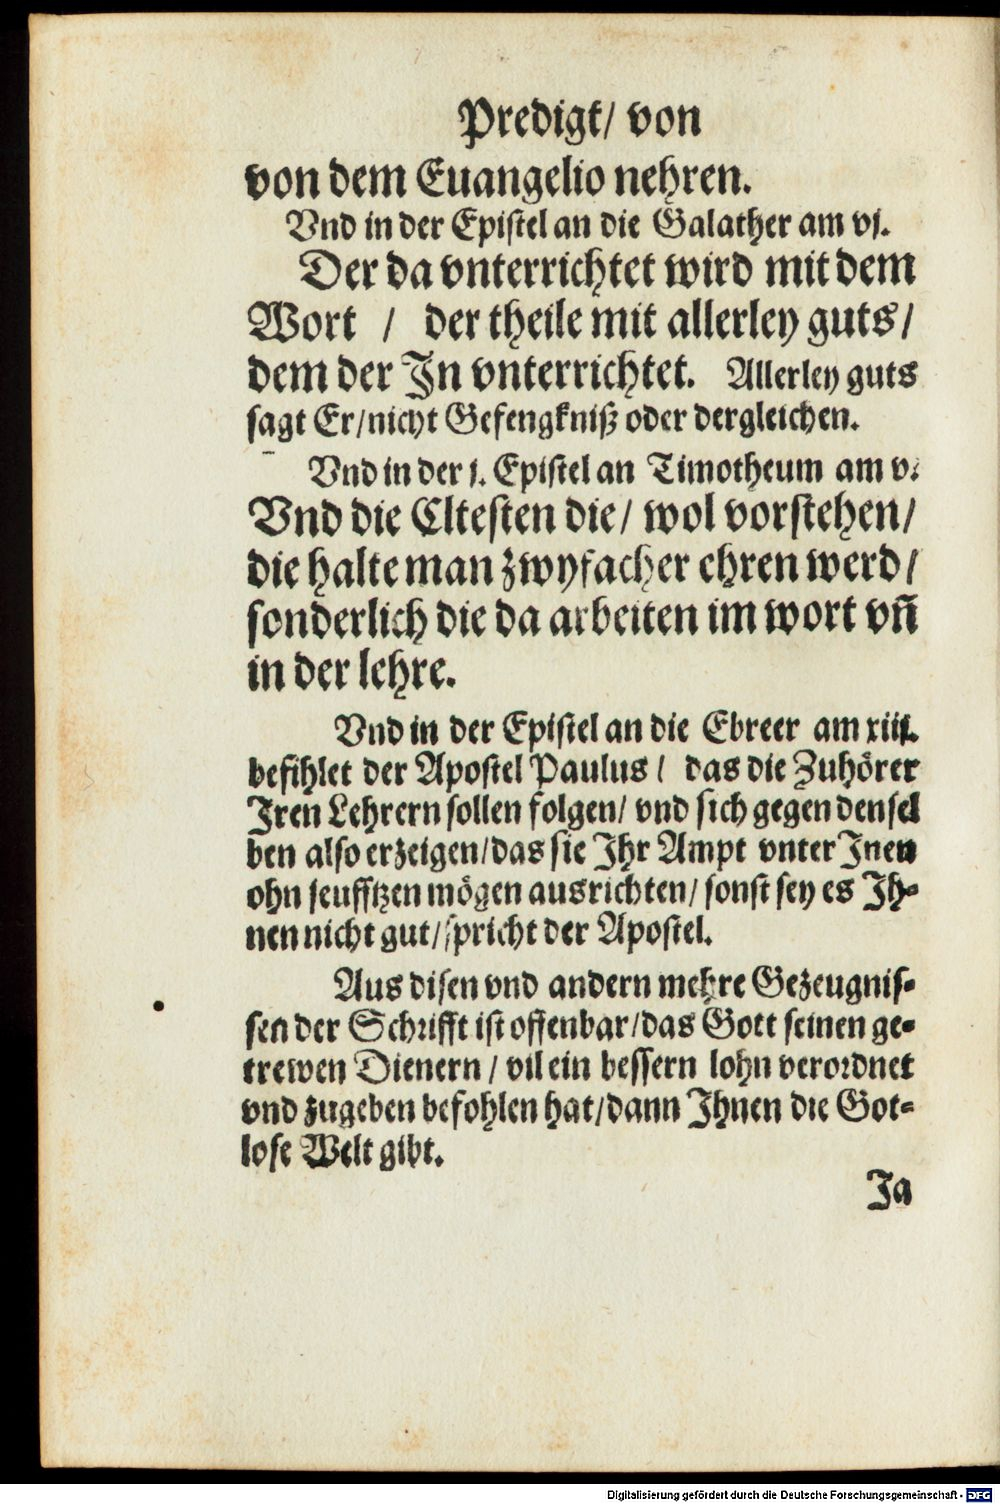 Predigt/ von
von dem Euangelio nehren.
Vnd in der Epistel an die Galather am vj.
Der da vnterrichtet wird mit dem
Wort / der theile mit allerley guts/
dem der In vnterrichtet. Allerley guts
sagt Er/nicht Gefengkniß oder dergleichen.
Vnd in der j. Epistel an Timotheum am v.
Vnd die Eltesten die/ wol vorstehen/
die halte man zwyfacher ehren werd/
sonderlich die da arbeiten im wort vñ
in der lehre.
Vnd in der Epistel an die Ebreer am xiij.
befihlet der Apostel Paulus / das die Zuhörer
Iren Lehrern sollen folgen/ vnd sich gegen densel
ben also erzeigen/das sie Ihr Ampt vnter Inen
ohn seufftzen mögen ausrichten/ sonst sey es Ih-
nen nicht gut/spricht der Apostel.
Aus disen vnd andern mehre Gezeugnis-
sen der Schrifft ist offenbar/das Gott seinen ge-
trewen Dienern / vil ein bessern lohn verordnet
vnd zugeben befohlen hat/dann Ihnen die Got-
lose Welt gibt.
Ja
Digitalisierung gefördert durch die Deutsche Forschungsgemeinschaft - DFG